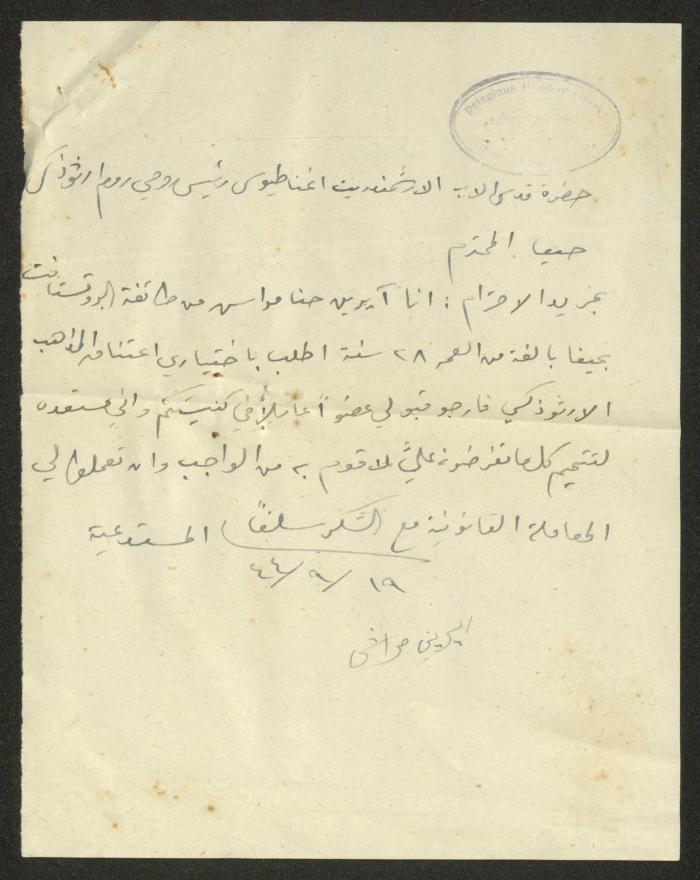 Religious Head of Greek
حضرة قدس الاب الارشمندريت اغناطيوس رئيس روحي روم ارثوذكس
حيفا المحترم
بمزيد الاحترام : انا آيرين حنا مواسي من طائفة البروتستانت
بحيفا بالغة من العمر ٢٨ سنة اطلب باختياري اعتناق المذهب
الارثوذكسي فارجو قبولي عضواً عاملاً في كنيستكم واني مستعده
لتتميم كل ما تفرضونه عليَّ لاقوم به من الواجب وان تعملوا لي
المعاملة القانونية مع الشكر سلفاً المستدعية
١٩/٩/٤٤
ايرين